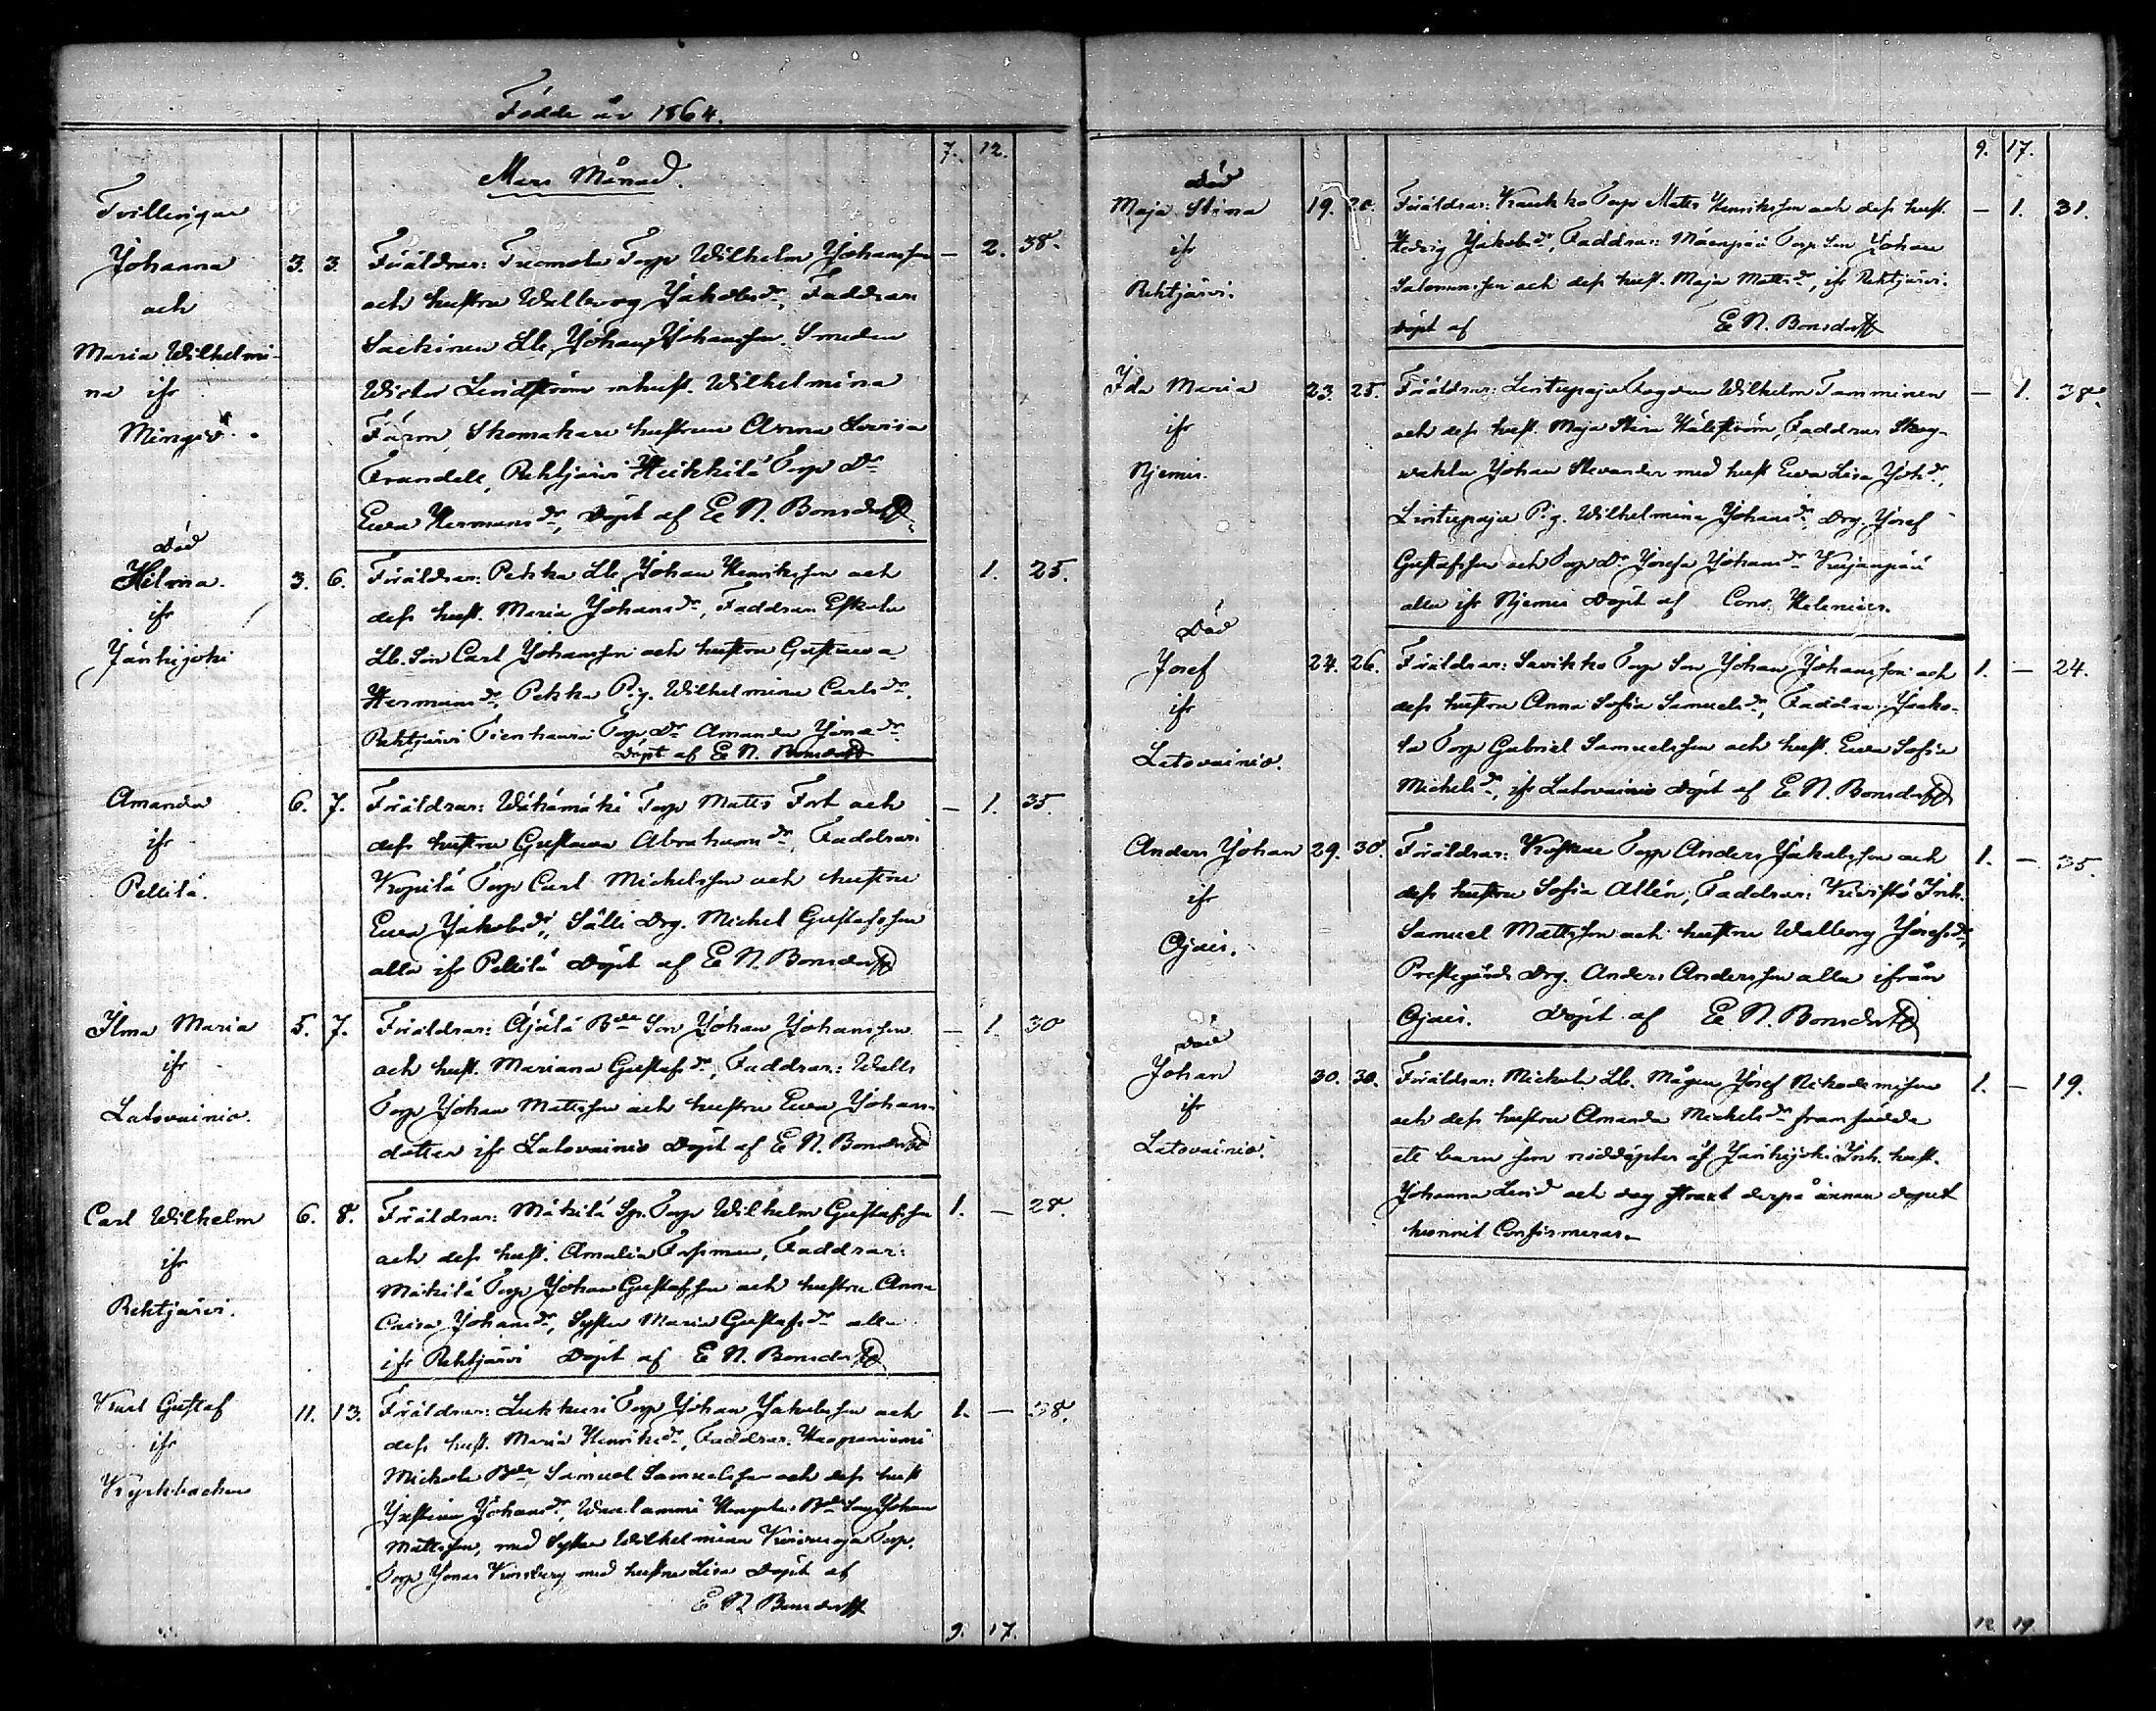 Födde år 1864.
7. 12.
Mars Månad.
Tvillingar
Johanna 3. 3. Föräldrar: Tuomola Torp Wilhelm Johansson — 2. 38.
och och hustru Walborg Jakobsdr, Faddrar:
Maria Wilhelmi- Lb. Johan Johansson. Smeden
na ifr Victor Lindström m hust. Wilhelmina
Skomakare hustrun Anna Lovisa
Rehtijärvi Heikkilä Torp Dr
Ewa Hermansdr, Döpt af E N. Bonsdorff
Död
Hilma. 3. 6. Föräldrar: Pekka Lb. Johan Henriksson och 1. 25.
ifr dess hust. Maria Johansdr, Faddrar: Eskola
Jänhijoki Lb. Son Carl Johansson och hustru Gustava
Hermansdr, Pekka Pig. Wilhelmina Carlsdr.
Rehtijärvi Torp Dr Amanda
Döpt af E N. Bonsdorff
Amanda 6. 7. Föräldrar: Wähämäki Torp Matts Fort och — 1. 35.
ifr dess hustru Gustava Abrahamsdr, Faddrar:
Pellilä. Torp Carl Michelsson och hustru
Ewa Jakobsdr, Sälli Drg. Michel Gustafsson
alla ifr Pellilä Döpt af E N. Bonsdorff
Ilma Maria 5. 7. Föräldrar: Äjälä Bde Son Johan Johansson — 1. 30
ifr och hust. Mariana Gustafsdr, Faddrar:
Latovainio. Torp Johan Mattsson och hustru Ewa Johans-
dotter ifr Latovainio Döpt af E N. Bonsdorff
Carl Wilhelm 6. 8. Föräldrar: Mäkilä Sp. Torp Wilhelm Gustafsson 1. — 28.
ifr och dess hust. Amalia Forsman, Faddrar:
Rehtijärvi. Mäkilä Torp Johan Gustafsson och hustru Anna
Caisa Johansdr, Syster Maria Gustafsdr alla
ifr Rehtijärvi Döpt af E N. Bonsdorff
Karl Gustaf 11. 13. Föräldrar: Lukkari Torp Johan Jakobsson och 1. — 38.
ifr dess hust. Maria Henriksdr, Faddrar: Haapaniemi
Kyrkbacken Michola Bde Samuel Samuelsson och dess hust
Justina Johansdr, Bde Son Johan
Mattsson, med Syster Wilhelmina Torp.
Torp Jonas med hustru Lisa Döpt af
E N Bonsdorff
9. 17.
9. 17.
Död
Maja Stina 19. 20. Föräldrar: Torp Matts Henriksson och dess hust. — 1. 31.
ifr Hedvig Jakobsdr, Faddrar: Mäenpää Torp Son Johan
Rehtijärvi. Salomonsson och dess hust. Maja Mattsdr, ifr Rehtijärvi.
Döpt af E N. Bonsdorff
Ida Maria 23. 25. Föräldrar: Lintupaja Wilhelm Tamminen — 1. 38.
ifr och dess hust. Maja Stina Hälström, Faddrar Skog-
Njemis. waktar Johan med hust Ewa Lisa Johdr,
Lintupaja Pig. Wilhelmina Johansdr, Drg. Josef
Gustafsson och Torp Dr Josefa Johansdr
alla ifr Njemis Döpt af Cons. Helenius.
Död
Josef 24. 26. Föräldrar: Savikko Torp Son Johan Johansson och 1. — 24.
ifr dess hustru Anna Sofia Samuelsdr, Faddrar: Jaako-
Latovainio. la Torp Gabriel Samuelsson och hust. Ewa Sofia
Michelsdr, ifr Latovainio Döpt af E N. Bonsdorff
Anders Johan 29. 30. Föräldrar: Torp Anders Jakobsson och 1. — 35.
ifr dess hustru Sofia Allén, Faddrar: Kivistö Inh.
Ojais. Samuel Mattsson och hustru Walborg Josefsdr,
Prestegårds Drg. Anders Andersson alla ifrån
Ojais. Döpt af E. N. Bonsdorff
Död
Johan 30. 30. Föräldrar: Michola Lb. Mågen Josef Nikodemusson 1. — 19.
ifr och dess hustru Amanda Michelsdr framfödde
Latovainio. ett barn som nöddöptes af Jänhijoki Inh. hust.
Johanna Lind och dog straxt derpå innan dopet
hunnit Confirmeras.
12. 19.